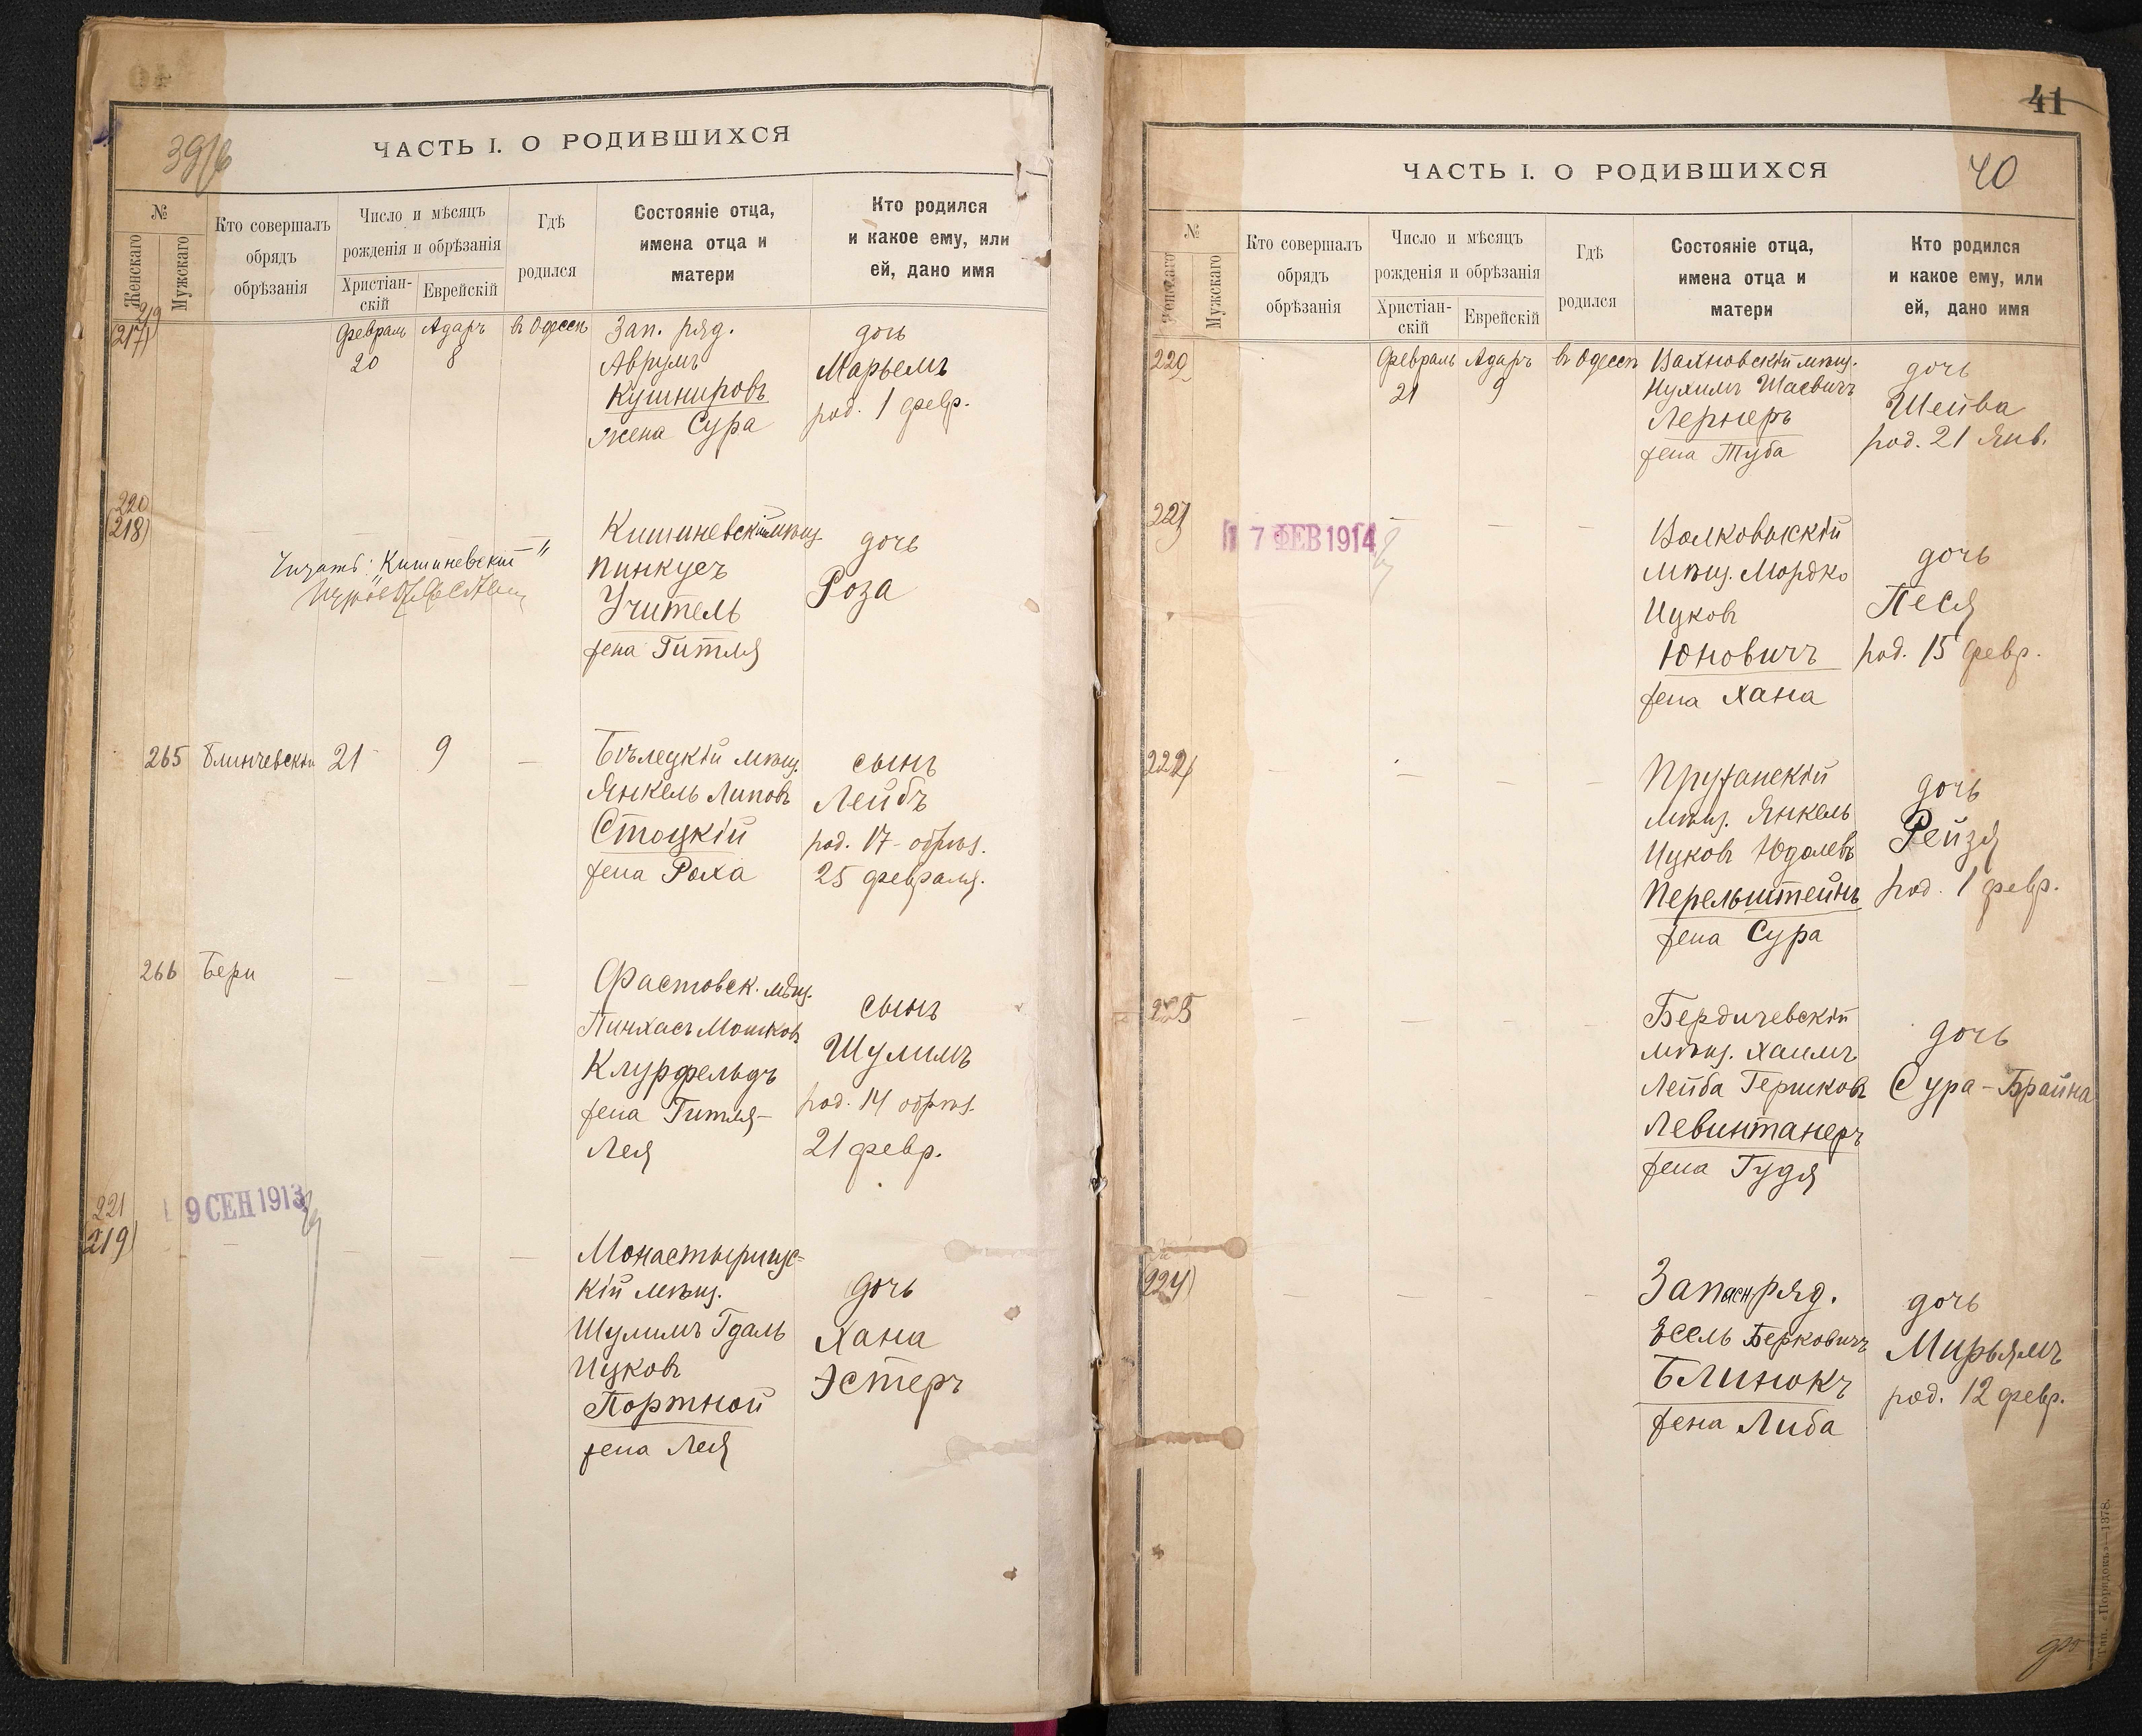 ЧАСТЬ I. О РОДИВШИХСЯ
№
Женскаго
Мужскаго
Кто совершалъ
обрядъ
обрѣзанія
Число и мѣсяцъ
рожденія и обрѣзанія
Христіан-
скій
Еврейскій
Гдѣ
родился
Состояніе отца,
имена отца и
матери
Кто родился
и какое ему, или
ей, дано имя
219
(217)
Февраль
20
Адаръ
8
въ Одессѣ
Зап. ряд.
Аврумъ
Кушнировъ
жена Сура
дочь
Марьемъ
род. 1 февр.
220
(218)
Читать: "Кишиневскій"
Кишиневскій мѣщ.
Пинкусъ
Учитель
жена Гитля
дочь
Роза
265
Блинчевскій
21
9
—
Бѣлецкій мѣщ.
Янкель Липовъ
Стоцкій
жена Роха
сынъ
Лейбъ
род. 17 - обрѣз.
25 февраля.
266
Бери
— — —
Фастовск. мѣщ.
Пинхасъ Мошковъ
Клурфельдъ
жена Гитля-
Лея
сынъ
Шулимъ
род. 14 обрѣз.
21 февр.
221
(219)
9 СЕН 1913
— — — —
Монастырищс-
кій мѣщ.
Шулимъ Гдаль
Ицковъ
Портной
жена Лея
дочь
Хана
Эстеръ
41
40
ЧАСТЬ I. О РОДИВШИХСЯ
№
Женскаго
Мужскаго
Кто совершалъ
обрядъ
обрѣзанія
Число и мѣсяцъ
рожденія и обрѣзанія
Христіан-
скій
Еврейскій
Гдѣ
родился
Состояніе отца,
имена отца и
матери
Кто родился
и какое ему, или
ей, дано имя
220
Февраль
21
Адаръ
9
въ Одессѣ
Вахновскій мѣщ.
Нухимъ Шаевичъ
Лернеръ
жена Туба
дочь
Шейва
род. 21 Янв.
221
17 ФЕВ 1914
— — —
Волковыскій
мѣщ. Мордко
Ицковъ
Юновичъ
жена Хана
дочь
Песя
род. 15 февр.
222
— — — —
Пружанскій
мѣщ. Янкель
Ицковъ Юдолевъ
Перельштейнъ
жена Сура
дочь
Рейзя
род. 1 февр.
223
— — — —
Бердичевскій
мѣщ. Хаимъ
Лейба Гершковъ
Левинтанеръ
жена Гудя
дочь
Сура-Брайна
(224)
— — — —
Запасн. ряд.
Эсель Берковичъ
Блинокъ
жена Либа
дочь
Мирьямъ
род. 12 февр.
Тип. «Порядокъ»—1378.